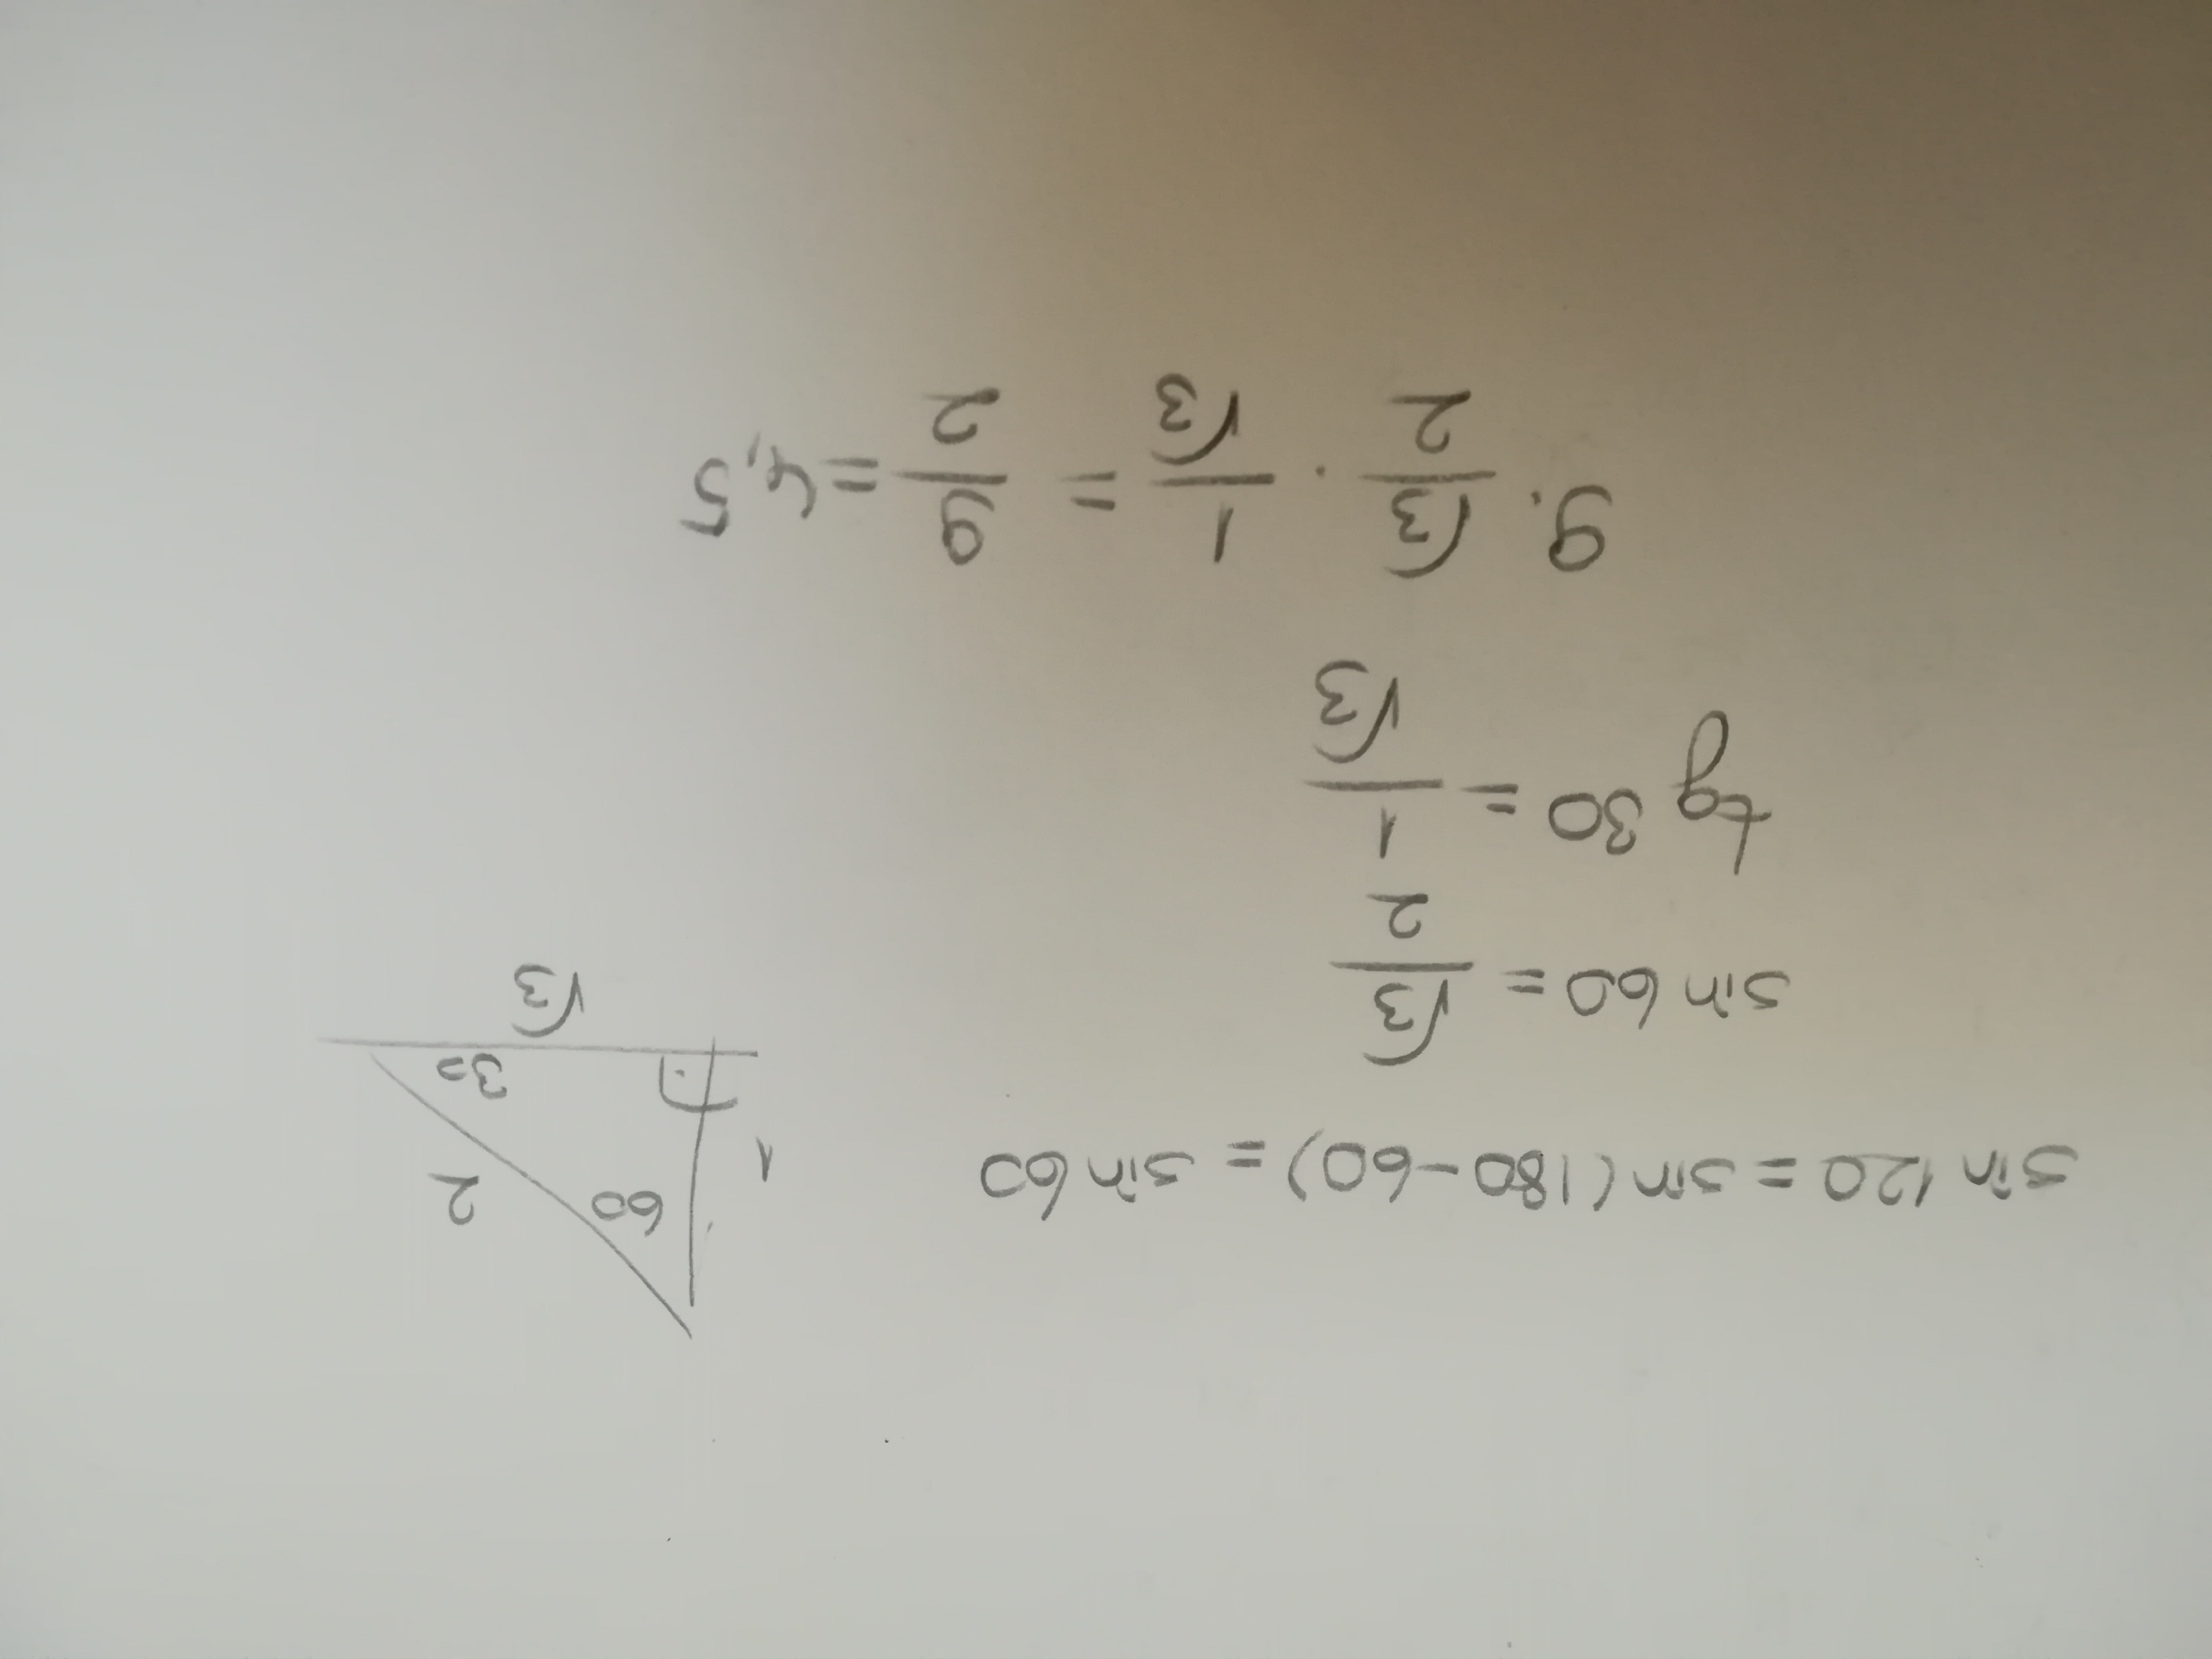 sin 120 = sin (180-60) = sin 60
1
60
2
30
√3
sin 60 = √3/2
tg 30 = 1/√3
9 · √3/2 · 1/√3 = 9/2 = 4,5